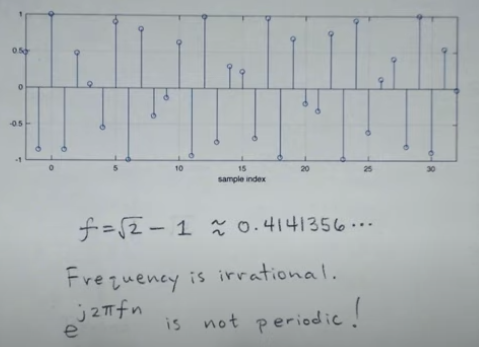 1
0.5
0
-0.5
-1
0 5 10 15 20 25 30
sample index
f = √2 - 1 ≈ 0.4141356...
Frequency is irrational.
e^{j2πfn} is not periodic!